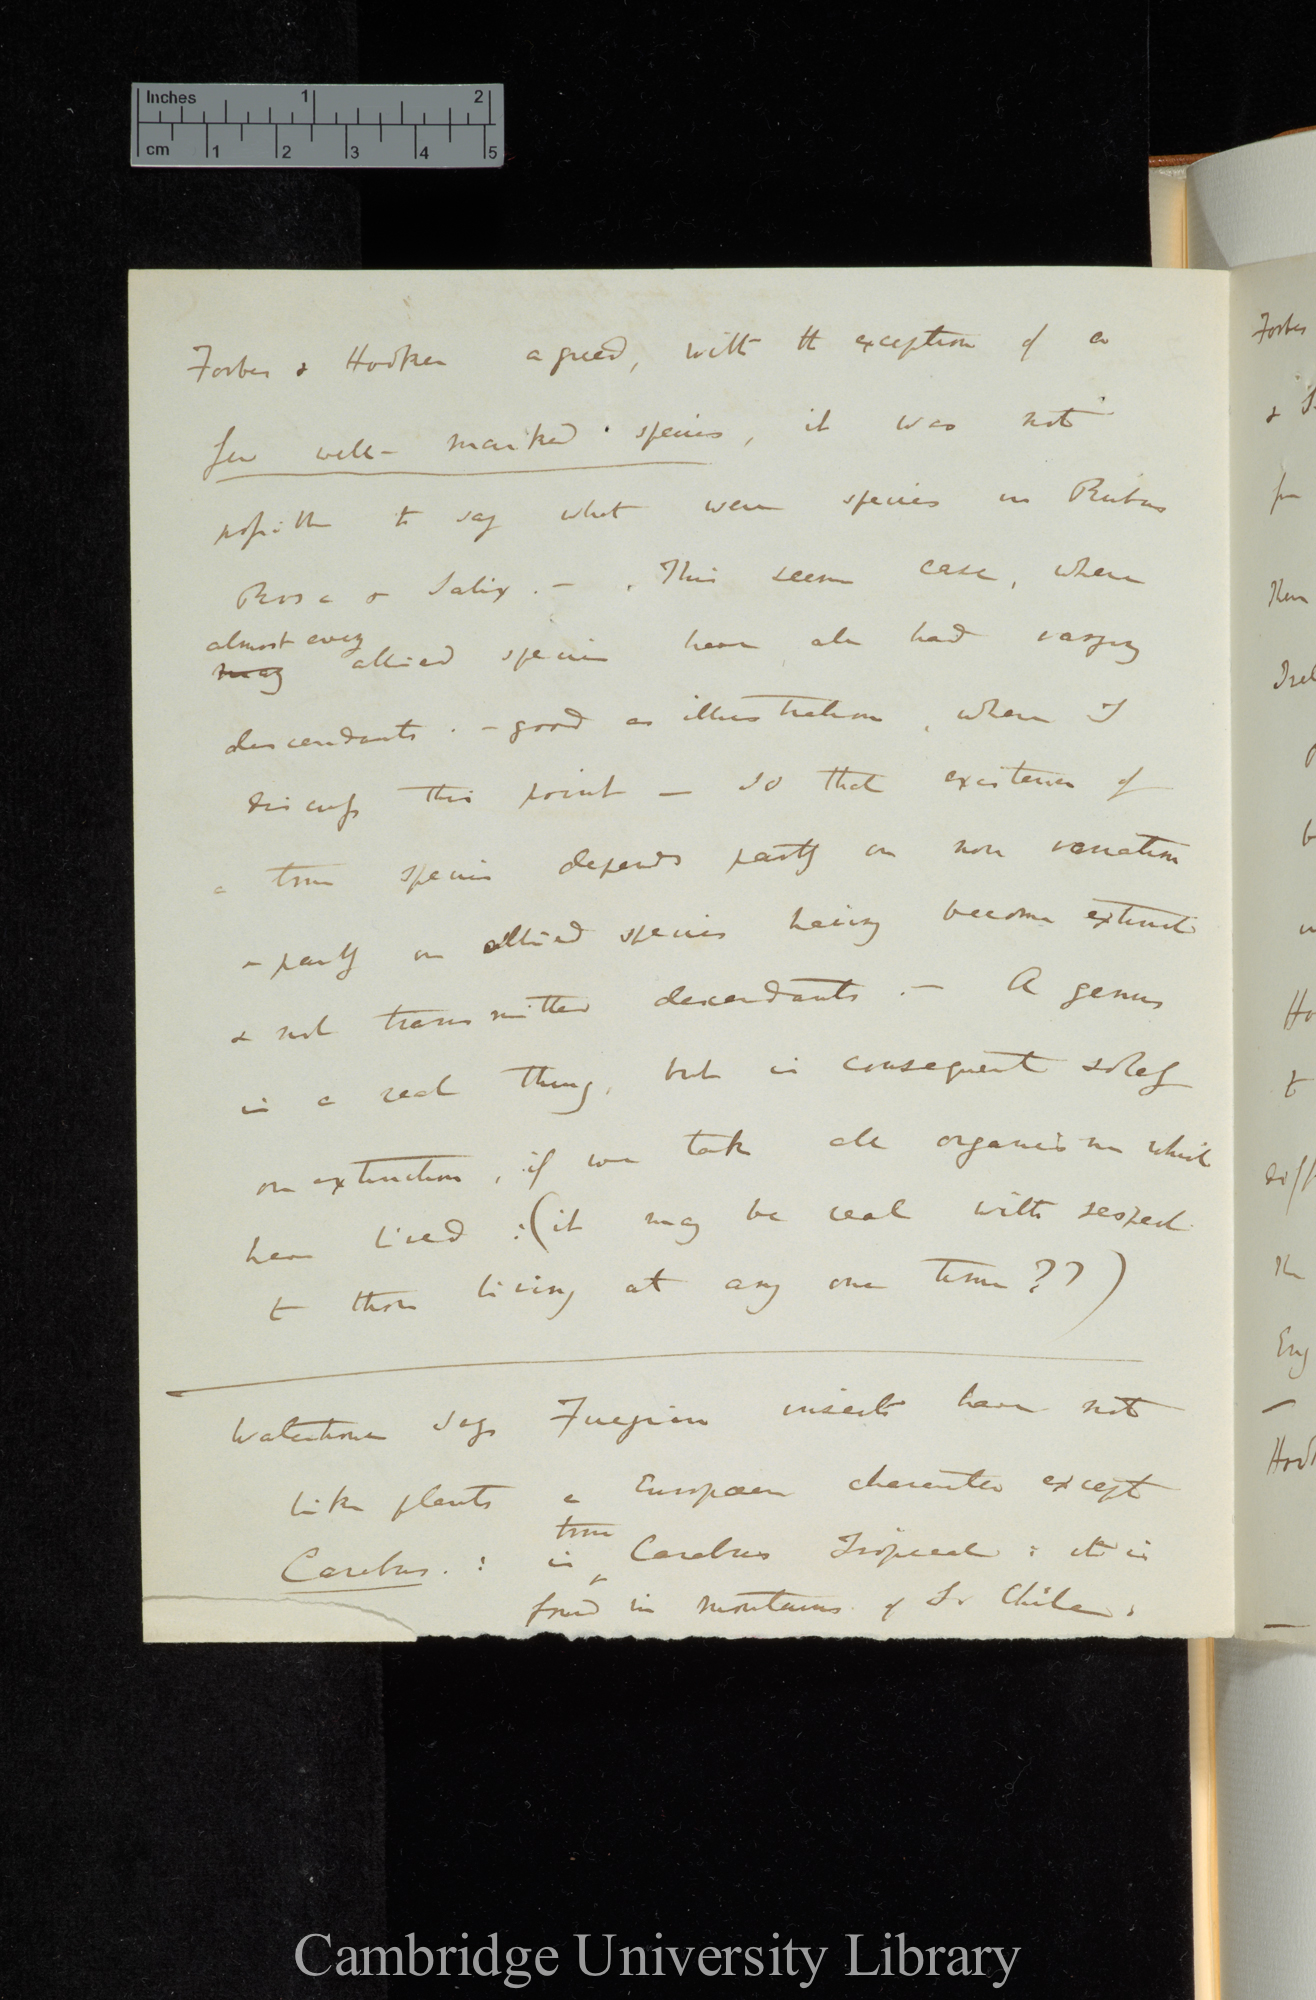 Inches 1 2
cm 1 2 3 4 5
Forbes & Hooker agreed, with the exception of a
few well-marked species, it was not
possible to say what were species in Rubus
Rosa & Salix. — This seems case, where
almost every
many allied species have all had varying
descendants. — good as illustration, when I
discuss this point — so that existence of
a true species depends partly on non variation
& partly on allied species having become extinct
& not transmitted descendants. — A genus
is a real thing, but is consequent solely
on extinction, if we take all organisms which
have lived: (it may be real with respect
to those living at any one time??)
Waterhouse says Fuegian insects have not
like plants a European character except
Carabus. :
true
is Carabus Tropical: it is
found in mountains of S. Chile:
Forbes
&
for
Then
Irel
Ho
to
diff
The
Eng
Hook
Cambridge University Library